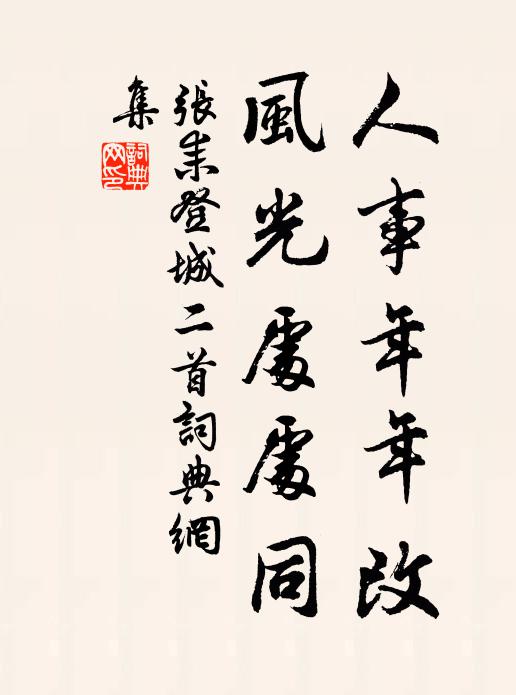 人事年年改
風光處處同
張耒登城二首詞典網
集
詞典网印